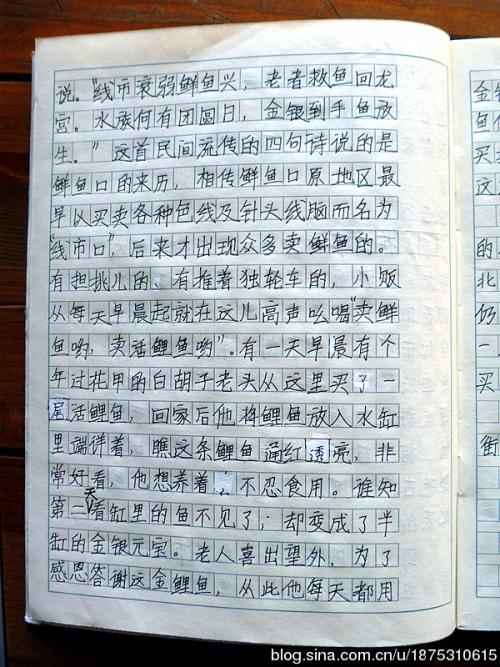 说。“线市衰弱鲜鱼兴，老者救鱼回龙
宫。水族何有团圆日，金银到手鱼放
生。”这首民间流传的四句诗说的是
鲜鱼口的来历，相传鲜鱼口原地区最
早以买卖各种色线及针头线脑而名为
“线市口”，后来才出现众多卖鲜鱼的。
有担挑儿的、有推着独轮车的，小贩
从每天早晨起就在这儿高声吆喝“卖鲜
鱼哟，卖活鲤鱼哟”。有一天早晨有个
年过花甲的白胡子老头从这里买了一
尾活鲤鱼，回家后他将鲤鱼放入水缸
里端详着，瞧这条鲤鱼通红透亮，非
常好看，他想养着 不忍食用。谁知
第二天看缸里的鱼不见了；却变成了半
缸的金银元宝。老人喜出望外，为了
感恩答谢这金鲤鱼，从此他每天都用
金银
鱼
买
这
的
北
仍
一
买
街
blog.sina.com.cn/u/1875310615